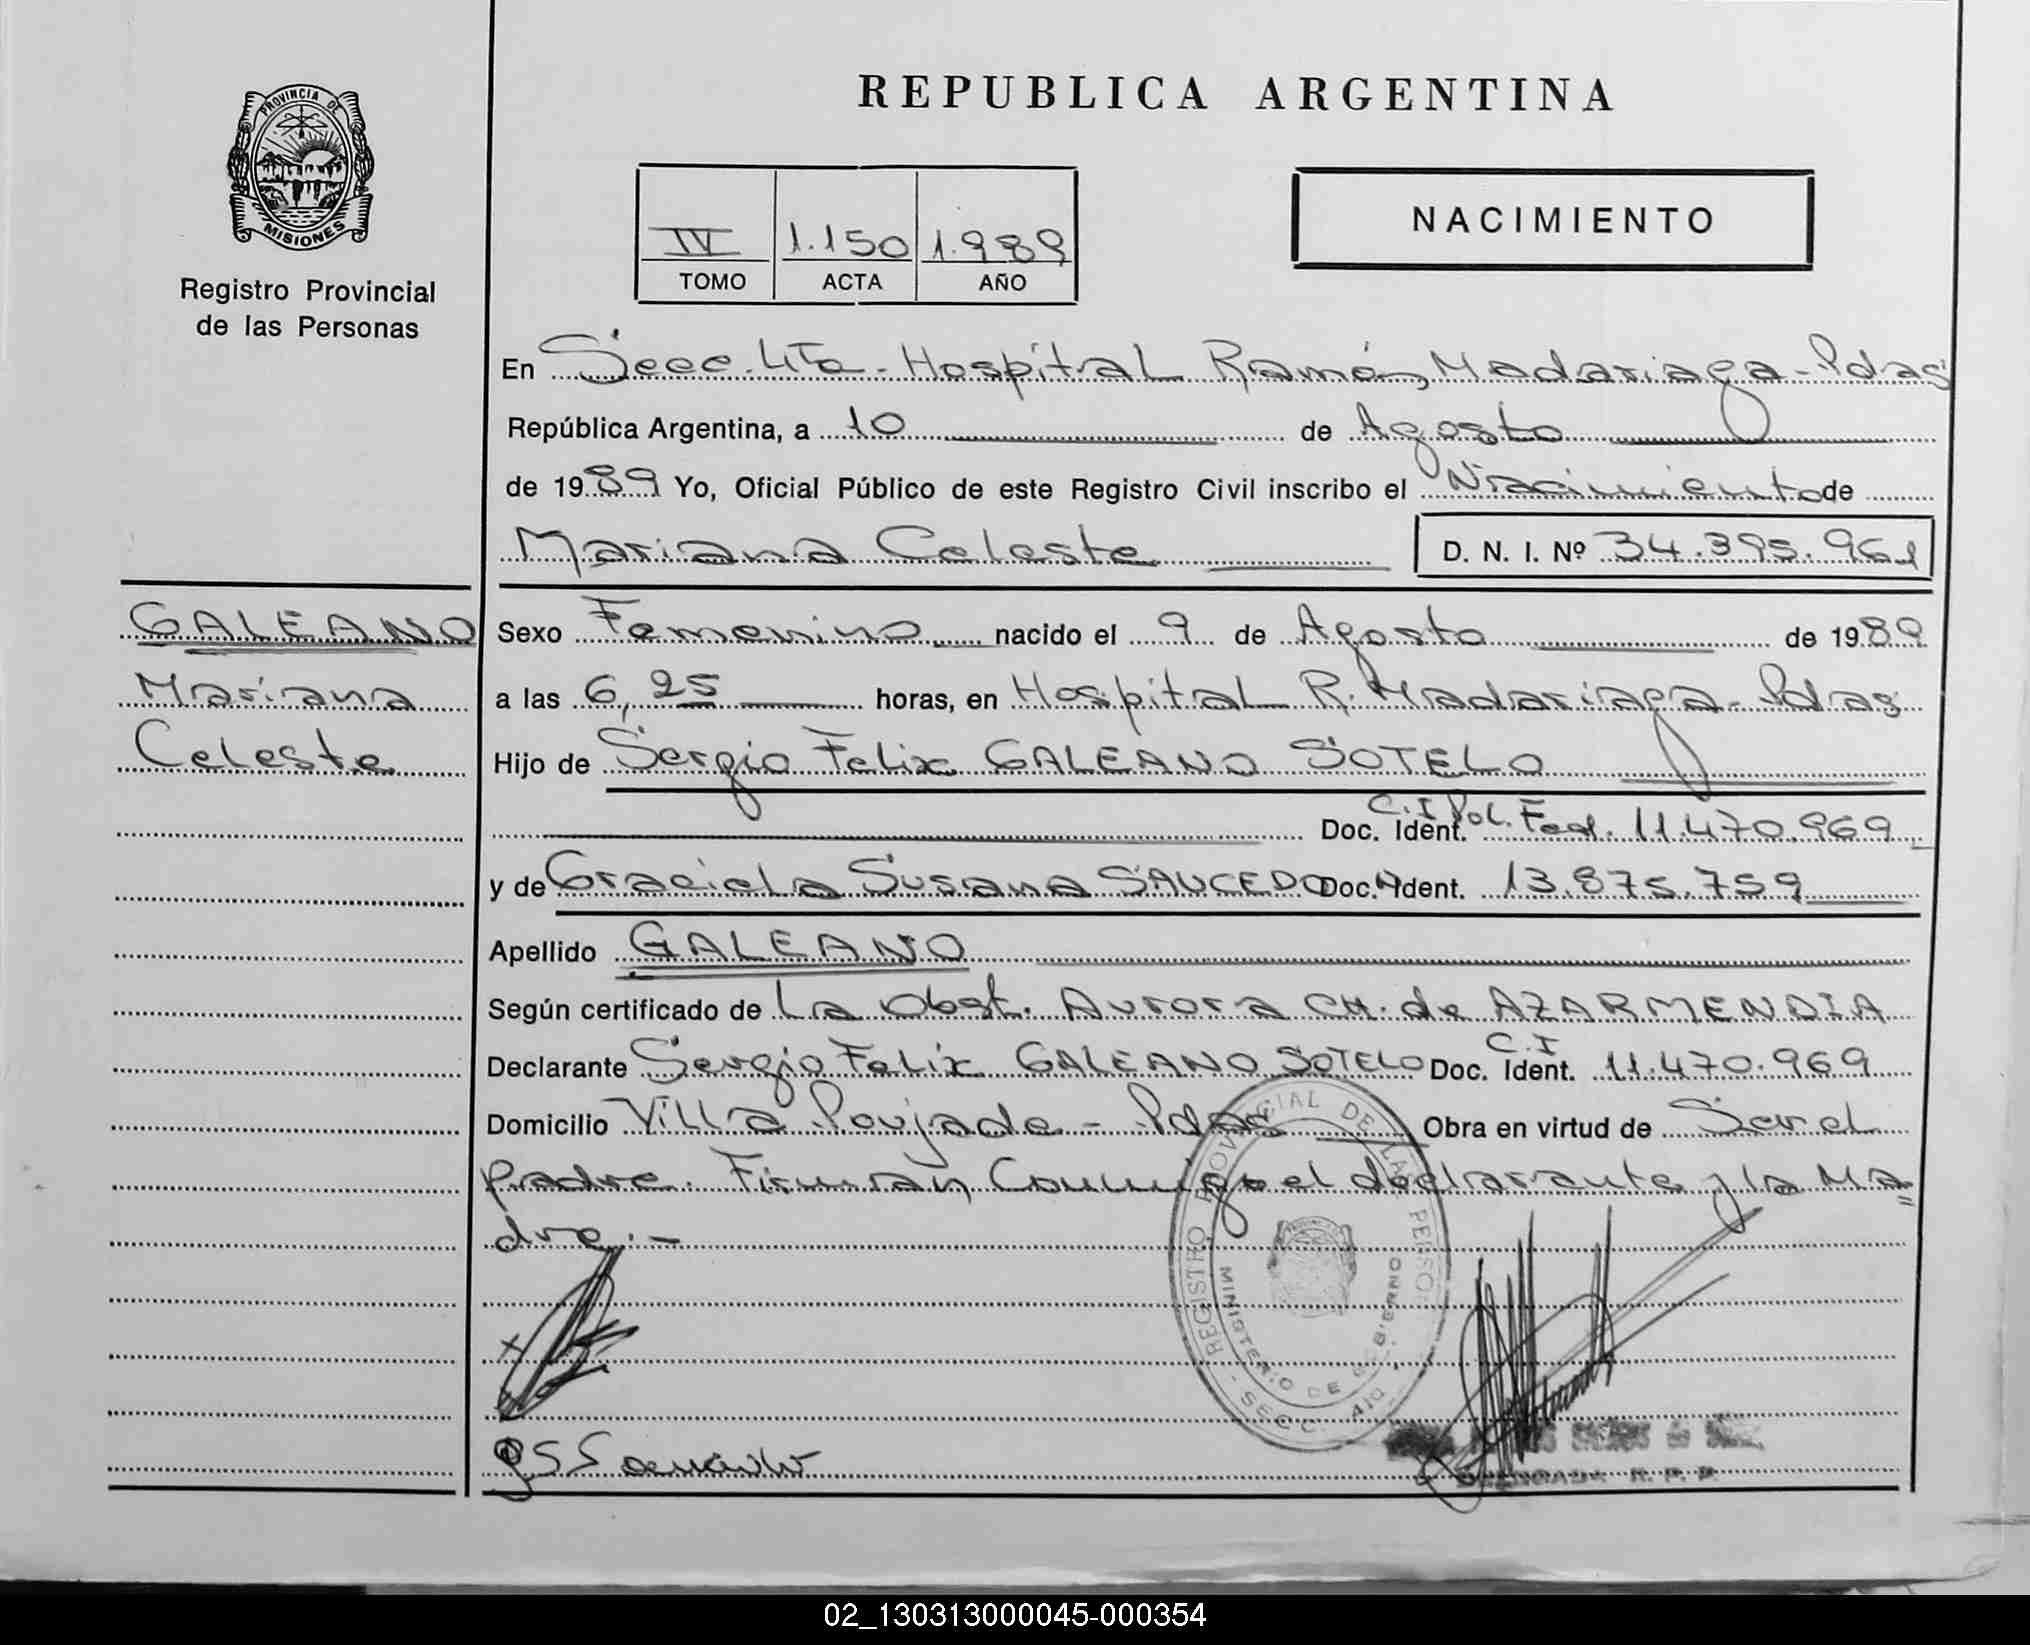 REPUBLICA ARGENTINA
PROVINCIA DE
MISIONES
Registro Provincial
de las Personas
IV 1.150 1.989
TOMO ACTA AÑO
NACIMIENTO
En Secc. 4ta - Hospital Ramón Madariaga - Pdas
República Argentina, a 10 de Agosto
de 1989 Yo, Oficial Público de este Registro Civil inscribo el Nacimiento de
Mariana Celeste D. N. I. Nº 34.395.961
GALEANO
Mariana
Celeste
Sexo Femenino nacido el 9 de Agosto de 1989
a las 6,25 horas, en Hospital R. Madariaga - Pdas
Hijo de Sergio Felix GALEANO SOTELO
Doc. Ident. C.I Pol. Fed. 11.470.969
y de Graciela Susana SAUCEDO Doc. Ident. 13.875.759
Apellido GALEANO
Según certificado de La Obst. Aurora CH. de AZARMENDIA
Declarante Sergio Felix GALEANO SOTELO Doc. Ident. C.I 11.470.969
Domicilio Villa Poujade - Pdas Obra en virtud de Ser el
padre. Firman Conmigo el declarante y la Ma=
dre.-
REGISTRO PROVINCIAL DE LAS PERSO
MINISTERIO DE GOBIERNO
SECC.
R. P. P.
02_130313000045-000354